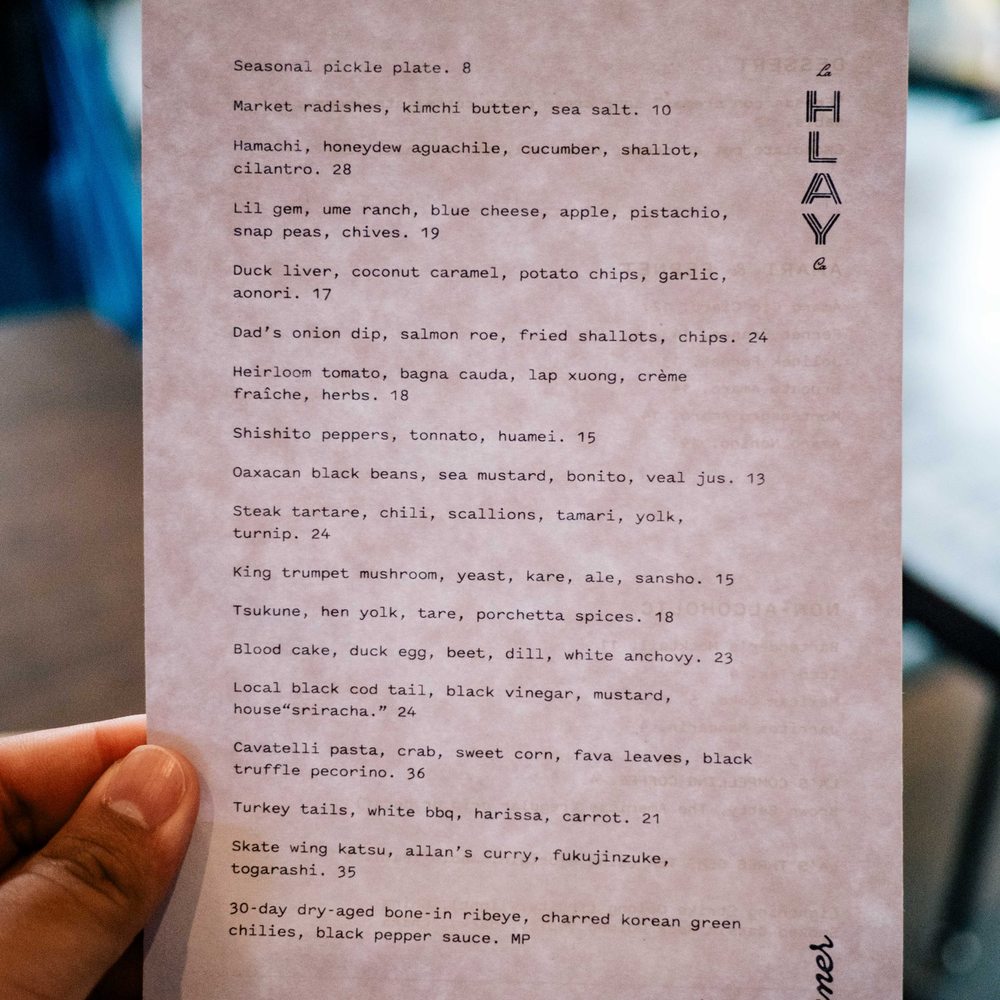 Seasonal pickle plate. 8
Market radishes, kimchi butter, sea salt. 10
Hamachi, honeydew aguachile, cucumber, shallot,
cilantro. 28
Lil gem, ume ranch, blue cheese, apple, pistachio,
snap peas, chives. 19
Duck liver, coconut caramel, potato chips, garlic,
aonori. 17
Dad’s onion dip, salmon roe, fried shallots, chips. 24
Heirloom tomato, bagna cauda, lap xuong, crème
fraîche, herbs. 18
Shishito peppers, tonnato, huamei. 15
Oaxacan black beans, sea mustard, bonito, veal jus. 13
Steak tartare, chili, scallions, tamari, yolk,
turnip. 24
King trumpet mushroom, yeast, kare, ale, sansho. 15
Tsukune, hen yolk, tare, porchetta spices. 18
Blood cake, duck egg, beet, dill, white anchovy. 23
Local black cod tail, black vinegar, mustard,
house“sriracha.” 24
Cavatelli pasta, crab, sweet corn, fava leaves, black
truffle pecorino. 36
Turkey tails, white bbq, harissa, carrot. 21
Skate wing katsu, allan’s curry, fukujinzuke,
togarashi. 35
30-day dry-aged bone-in ribeye, charred korean green
chilies, black pepper sauce. MP
La
HLAY
Ca